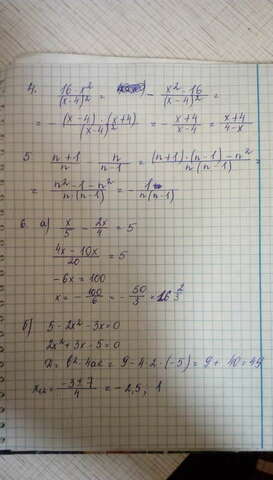 4. (16-x²)/(x-4)² = - (x²-16)/(x-4)² =
= - ((x-4)·(x+4))/(x-4)² = - (x+4)/(x-4) = (x+4)/(4-x)
5 (n+1)/n - n/(n-1) = ((n+1)·(n-1)-n²)/(n(n-1)) =
= (n²-1-n²)/(n(n-1)) = - 1/(n(n-1))
6. а) x/5 - 2x/4 = 5
(4x-10x)/20 = 5
-6x = 100
x = - 100/6 = - 50/3 = 16 2/3
б) 5-2x²-3x=0
2x²+3x-5=0
D = b²-4ac = 9-4·2·(-5) = 9+40=49
x₁,₂ = (-3±7)/4 = -2,5; 1